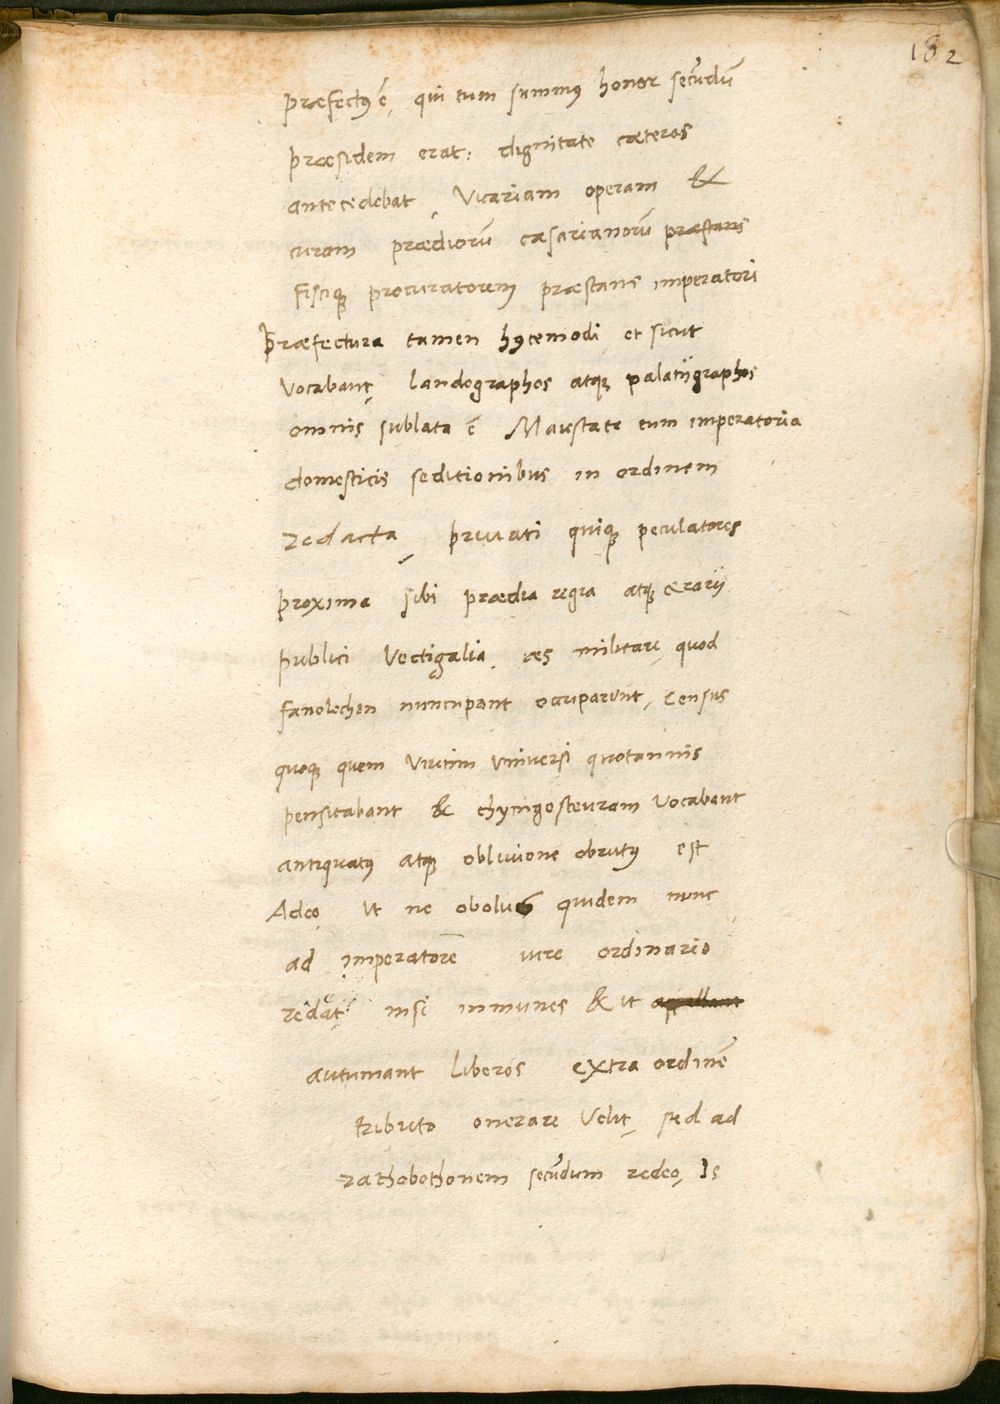 182
præfectꝰ ē, qui tum summꝰ honor secūdū
præsidem erat: dignitate cæteros
antecedebat, Vicariam operam &
curam prædiorū cæsarianorū præstans
fisciqꝫ procuratorem præstans imperatori
Præfectura tamen hꝰcemodi et sicut
vocabant, landographos atqꝫ palatijgraphos
omnis sublata ē Maiestate eum imperatoria
domesticis seditionibus in ordinem
redacta, priuati quiqꝫ peculatores
proxima sibi prædia regia atqꝫ ærarij
publici Vectigalia, æs militare, quod
fanolechen nuncupant occuparunt, Census
quoqꝫ quem viritim vniuersi quotannis
pensitabant & chyngosteuram vocabant
antiquatꝰ atqꝫ obliuione obrutꝰ est
Adeo, Vt ne obolus quidem nunc
ad imperatorē iure ordinario
redeat, nisi inmunes & ut apellant
autumant liberos extra ordinē
tributo onerare velit, sed ad
rathobothonem secūdum redeo, Is